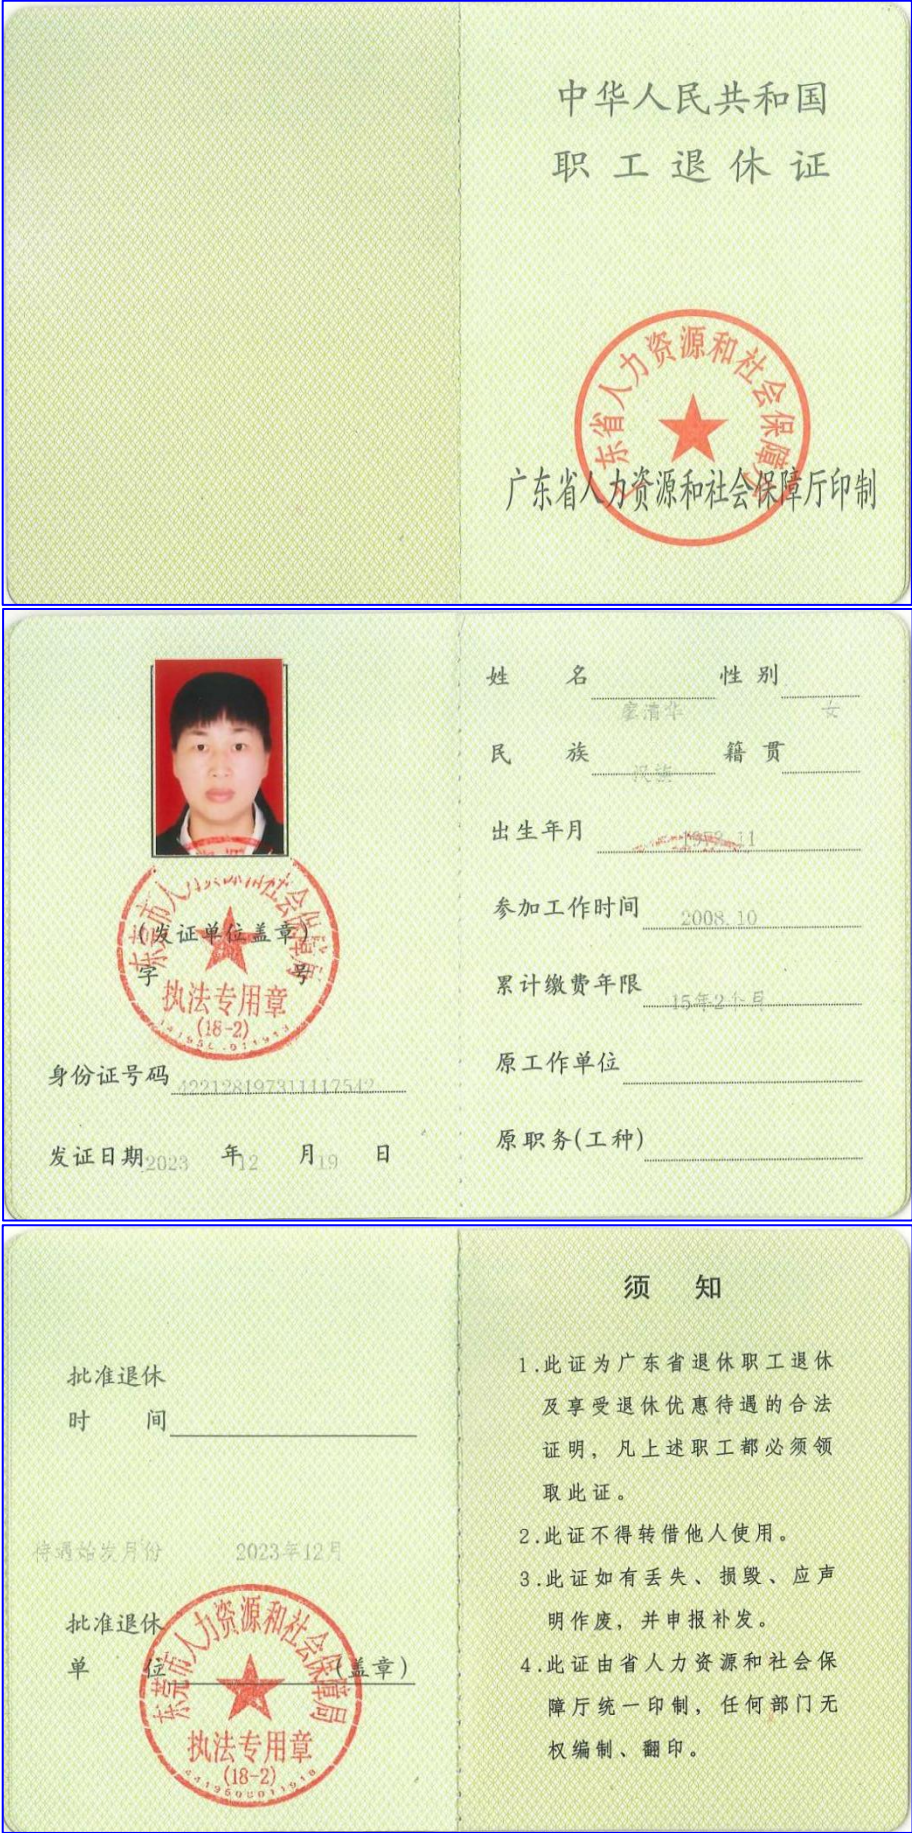 中华人民共和国
职工退休证
广东省人力资源和社会保障厅
广东省人力资源和社会保障厅印制
东莞市人力资源和社会保障局
(发证单位盖章)
字 号
执法专用章
(18-2)
身份证号码 422128197311117542
发证日期 2023 年 12 月 19 日
姓 名 廖清华 性 别 女
民 族 汉族 籍 贯
出生年月 1973.11
参加工作时间 2008.10
累计缴费年限 15年2个月
原工作单位
原职务(工种)
批准退休
时 间
待遇始发月份 2023年12月
批准退休
单 位 (盖章)
东莞市人力资源和社会保障局
执法专用章
(18-2)
须 知
1.此证为广东省退休职工退休
及享受退休优惠待遇的合法
证明，凡上述职工都必须领
取此证。
2.此证不得转借他人使用。
3.此证如有丢失、损毁、应声
明作废，并申报补发。
4.此证由省人力资源和社会保
障厅统一印制，任何部门无
权编制、翻印。